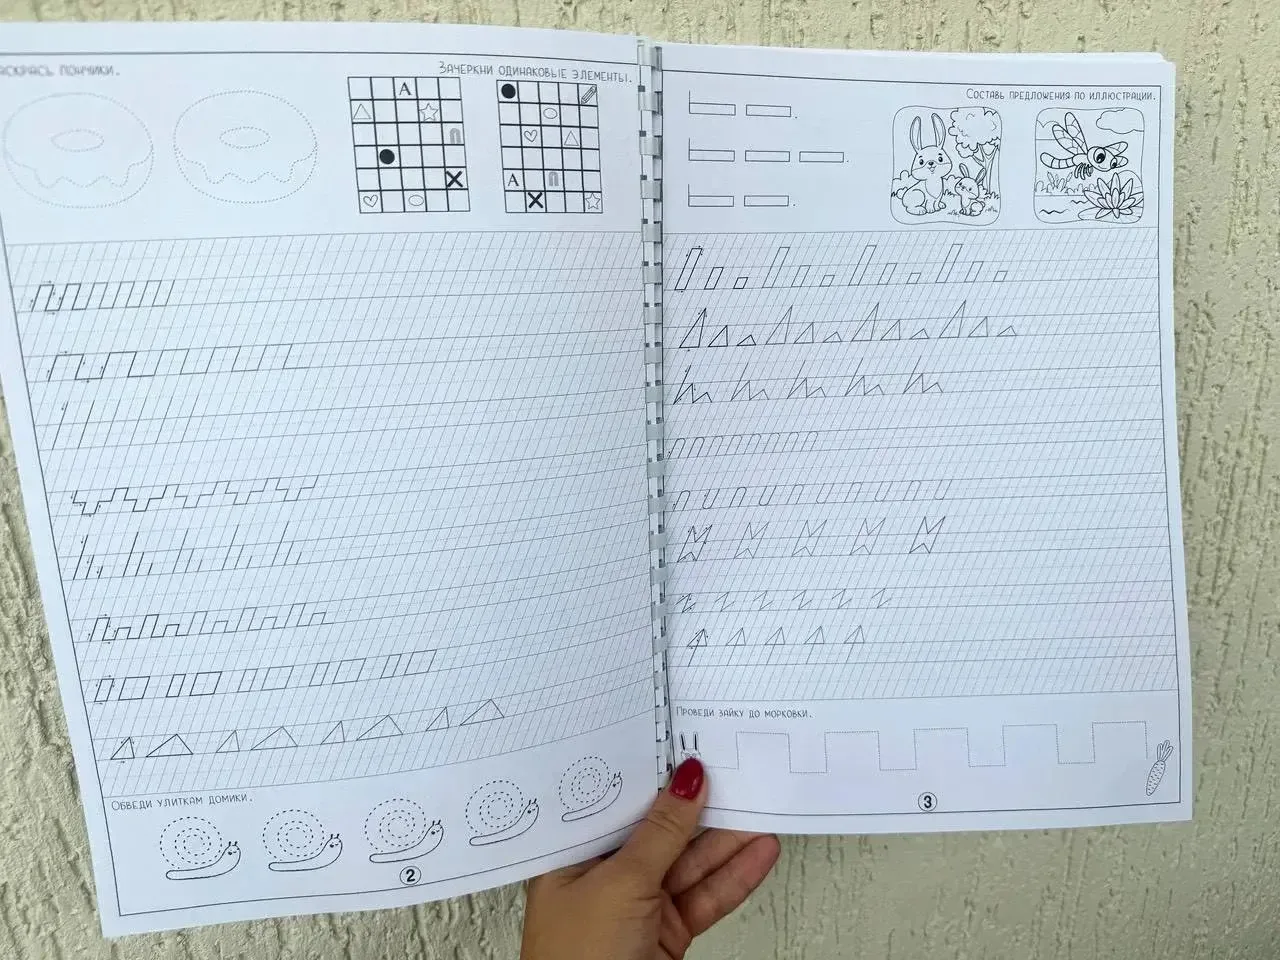 РАСКРАСЬ ПОНЧИКИ.
ЗАЧЕРКНИ ОДИНАКОВЫЕ ЭЛЕМЕНТЫ.
А
А
ОБВЕДИ УЛИТКАМ ДОМИКИ.
2
СОСТАВЬ ПРЕДЛОЖЕНИЯ ПО ИЛЛЮСТРАЦИИ.
ПРОВЕДИ ЗАЙКУ ДО МОРКОВКИ.
3